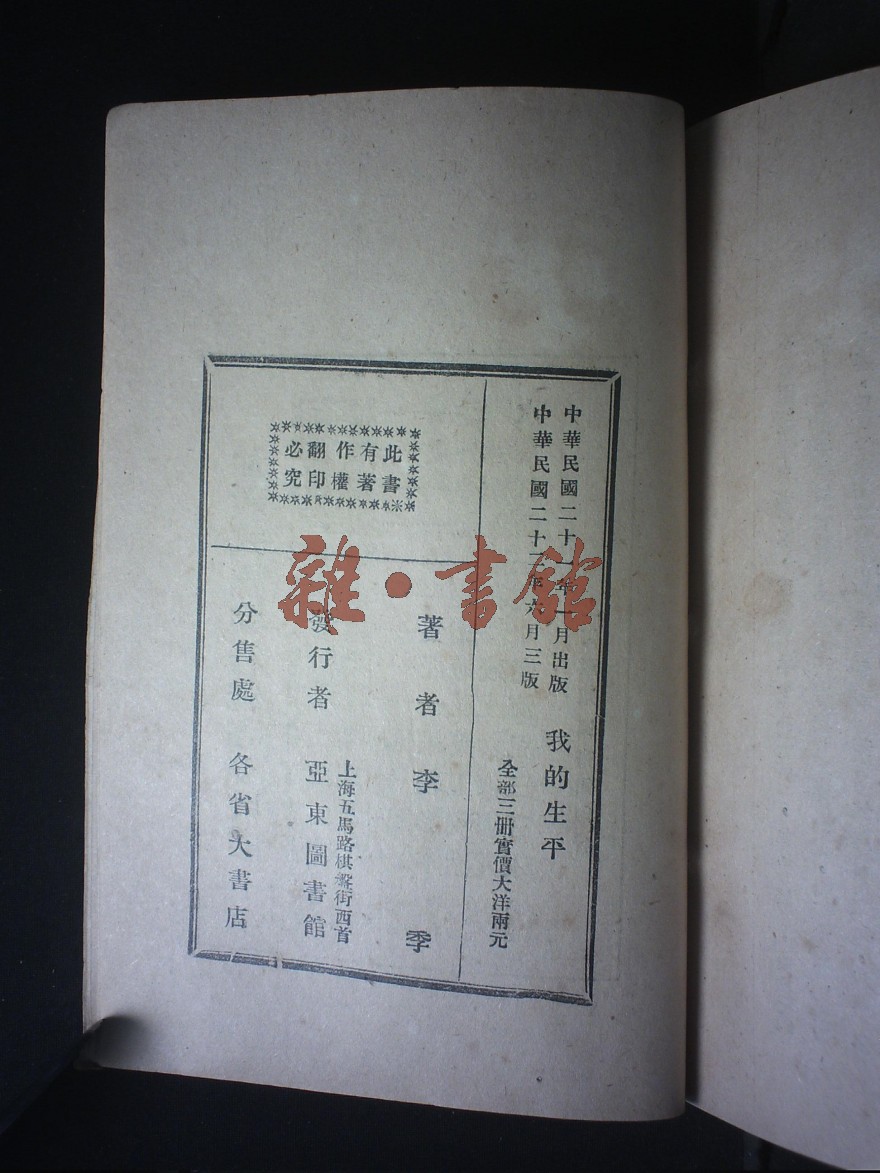 中華民國二十一年一月出版
中華民國二十二年六月三版
我的生平
全部三冊實價大洋兩元
此書
有著
作權
翻印
必究
著者 李季
上海五馬路棋盤街西首
發行者 亞東圖書館
分售處 各省大書店
雜·書館